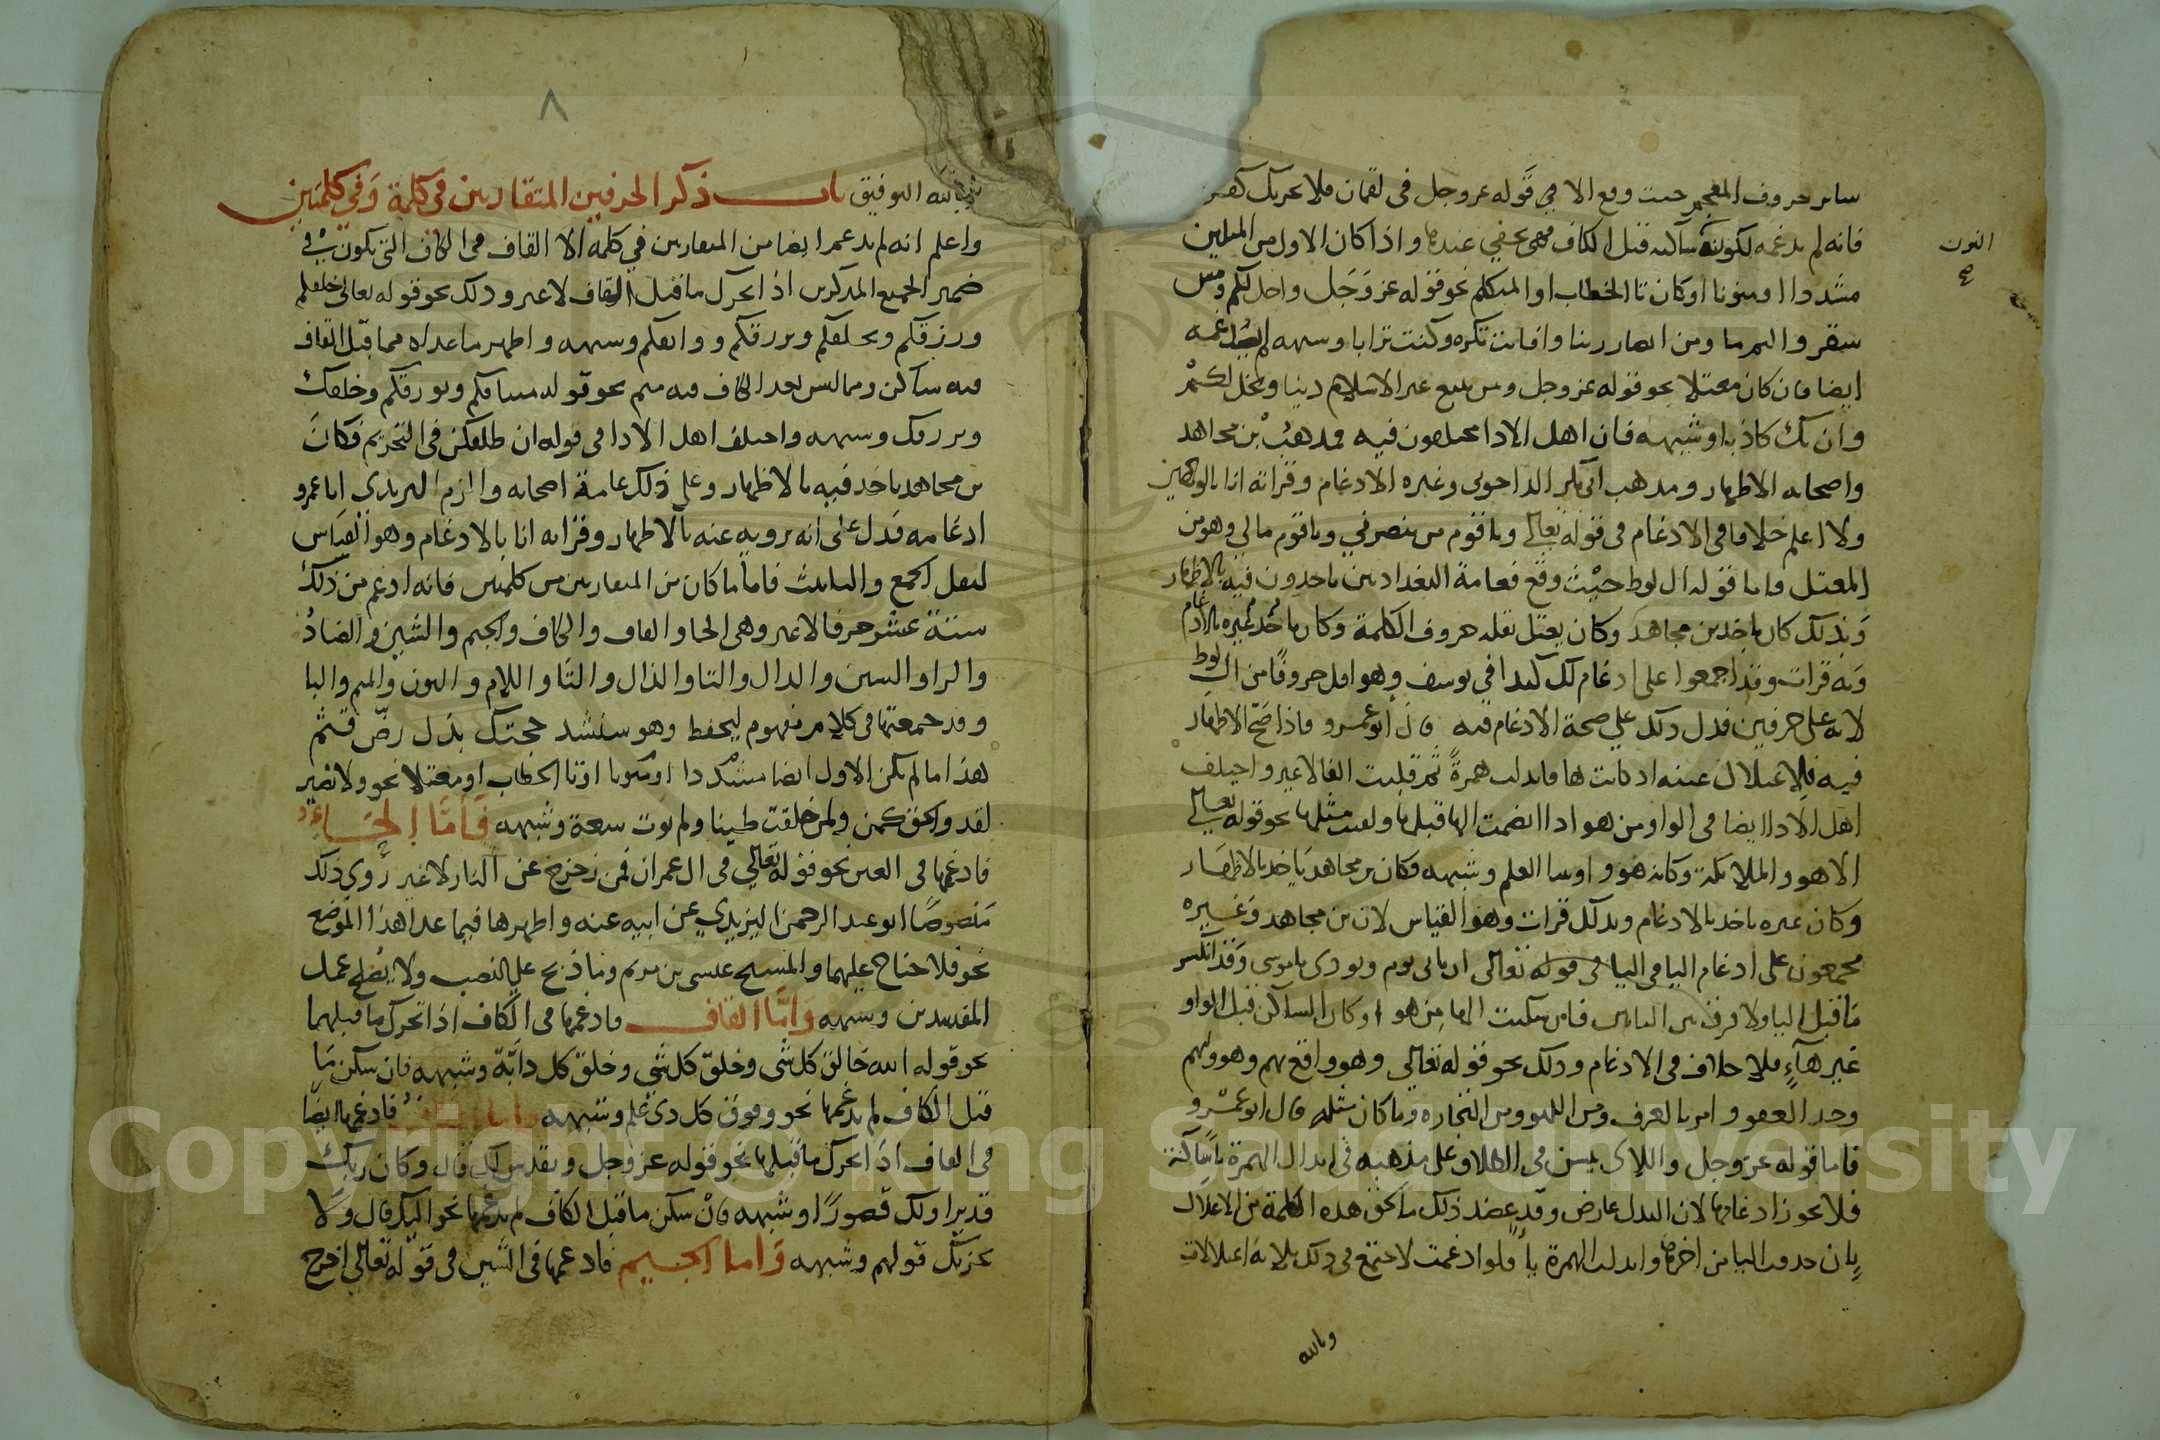 ساير حروف المعجم حيث وقع الا في قوله عز وجل في لقمان فلا يحزنك كفره
فانه لم يدغمه لكونه ساكنه قبل الكاف فهي تخفي عندها واذا كان الاول من المثلين
النون
مشددا او منونا او كان تا الخطاب او المتكلم نحو قوله عز وجل واحل لكم ومس
سقر واليم ما ومن انصار ربنا وافانت تكره وكنت ترابا وشبهه لم يدغمه
ايضا فان كان معتلا نحو قوله عز وجل ومن يبتغ غير الاسلام دينا ويخل لكم
وان يك كاذبا وشبهه فان اهل الادا مختلفون فيه فمذهب بن مجاهد
واصحابه الاظهار ومذهب ابي بكر الداجوني وغيره الادغام وقراته انا بالوجهين
ولا اعلم خلافا في الادغام في قوله تعالى ويا قوم من ينصرني ويا قوم مالي وهو من
المعتل واما قوله ال لوط حيث وقع فعامة البغدادين ياخذون فيه بالاظهار
وبذلك كان ياخذ بن مجاهد وكان يعتل بقلة حروف الكلمة وكان ياخذ غيره بالادغام
وبه قرات وقد اجمعوا على ادغام لك كيدا في يوسف وهو اقل حروفا من ال لوط
لانه على حرفين فدل ذلك على صحة الادغام فيه قال ابو عمرو فاذا صح الاظهار
فيه فلاعتلال عينه اذ كانت ها فابدلت همزة ثم قلبت الفا لا غير واختلف
اهل الادا ايضا في الواو من هو اذا انضمت الها قبلها ولقيت مثلها نحو قوله تعالى
الا هو والملايكة وكانه هو واوتينا العلم وشبهه فكان بن مجاهد ياخذ بالاظهار
وكان غيره ياخذ بالادغام وبذلك قرات وهو القياس لان بن مجاهد وغيره
مجمعون على ادغام اليا في اليا في قوله تعالى ان ياتي يوم ونودي يا موسى وقد انكسر
ما قبل اليا ولا فرق بين البابين فان سكنت الها من هو او كان الساكن قبل الواو
غير هاء فلا خلاف في الادغام وذلك نحو قوله تعالى وهو واقع بهم وهو وليهم
وخذ العفو وامر بالعرف ومن اللهو ومن التجاره وما كان مثله قال ابو عمرو
فاما قوله عز وجل واللاى يئسن في الطلاق على مذهبه في ابدال الهمزة ياء ساكنة
فلا يجوز ادغامها لان البدل عارض وقد عضد ذلك ما لحق هذه الكلمة من الاعلال
بان حذفت اليا من اخرها وابدلت الهمزة ياء فلو ادغمت لاجتمع في ذلك ثلاثة اعلالات
وبالله
٨
وبالله التوفيق باب ذكر الحرفين المتقاربين في كلمة وفي كلمتين
واعلم انه لم يدغم ايضا من المتقاربين في كلمه الا القاف في الكاف التي تكون في
ضمير الجميع المذكرين اذا تحرك ما قبل القاف لا غير وذلك نحو قوله تعالى خلقكم
ورزقكم ويخلقكم ويرزقكم وواثقكم وشبهه واظهر ما عداه مما قبل القاف
فيه ساكن ومما ليس بعد الكاف فيه ميم نحو قوله ميثاقكم وبورقكم وخلقك
ونرزقك وشبهه واختلف اهل الادا في قوله ان طلقكن في التحريم فكان
بن مجاهد ياخذ فيه بالاظهار وعلى ذلك عامة اصحابه والزم اليزيدي ابا عمرو
ادغامه فدل على انه يرويه عنه بالاظهار وقراته انا بالادغام وهو القياس
لثقل الجمع والتانيث فاما ما كان من المتقاربين من كلمتين فانه ادغم من ذلك
ستة عشر حرفا لا غير وهي الحا والقاف والكاف والجيم والشين والضاد
والرا والسين والدال والتا والذال والثا واللام والنون والميم والبا
وقد جمعتها في كلام مفهوم ليحفظ وهو سنشد حجتك بذل رض قثم
هذا ما لم يكن الاول ايضا مشددا او منونا او تا الخطاب او معتلا نحو ولا نصير
لقد والحق كمن ولمن خلقت طينا ولم يوت سعة وشبهه فاما الحاء
فادغمها في العين نحو قوله تعالى في ال عمران فمن زحزح عن النار لا غير روى ذلك
منصوصا ابو عبد الرحمن اليزيدي عن ابيه عنه واظهرها فيما عدا هذا الموضع
نحو فلا جناح عليهما والمسيح عيسى بن مريم وما ذبح على النصب ولا يصلح عمل
المفسدين وشبهه واما القاف فادغمها في الكاف اذا تحرك ما قبلها
نحو قوله الله خالق كل شي وخلق كل شي وخلق كل دابة وشبهه فان سكن ما
قبل الكاف لم يدغمها نحو وفوق كل ذي علم وشبهه واما الكاف فادغمها ايضا
في القاف اذا تحرك ما قبلها نحو قوله عز وجل ونقدس لك قال وكان ربك
قديرا ولك قصورا وشبهه فان سكن ما قبل الكاف لم يدغمها نحو اليك قال ولا
يحزنك قولهم وشبهه واما الجيم فادغمها في الشين في قوله تعالى اخرج
Copyright © King Saud University
1957